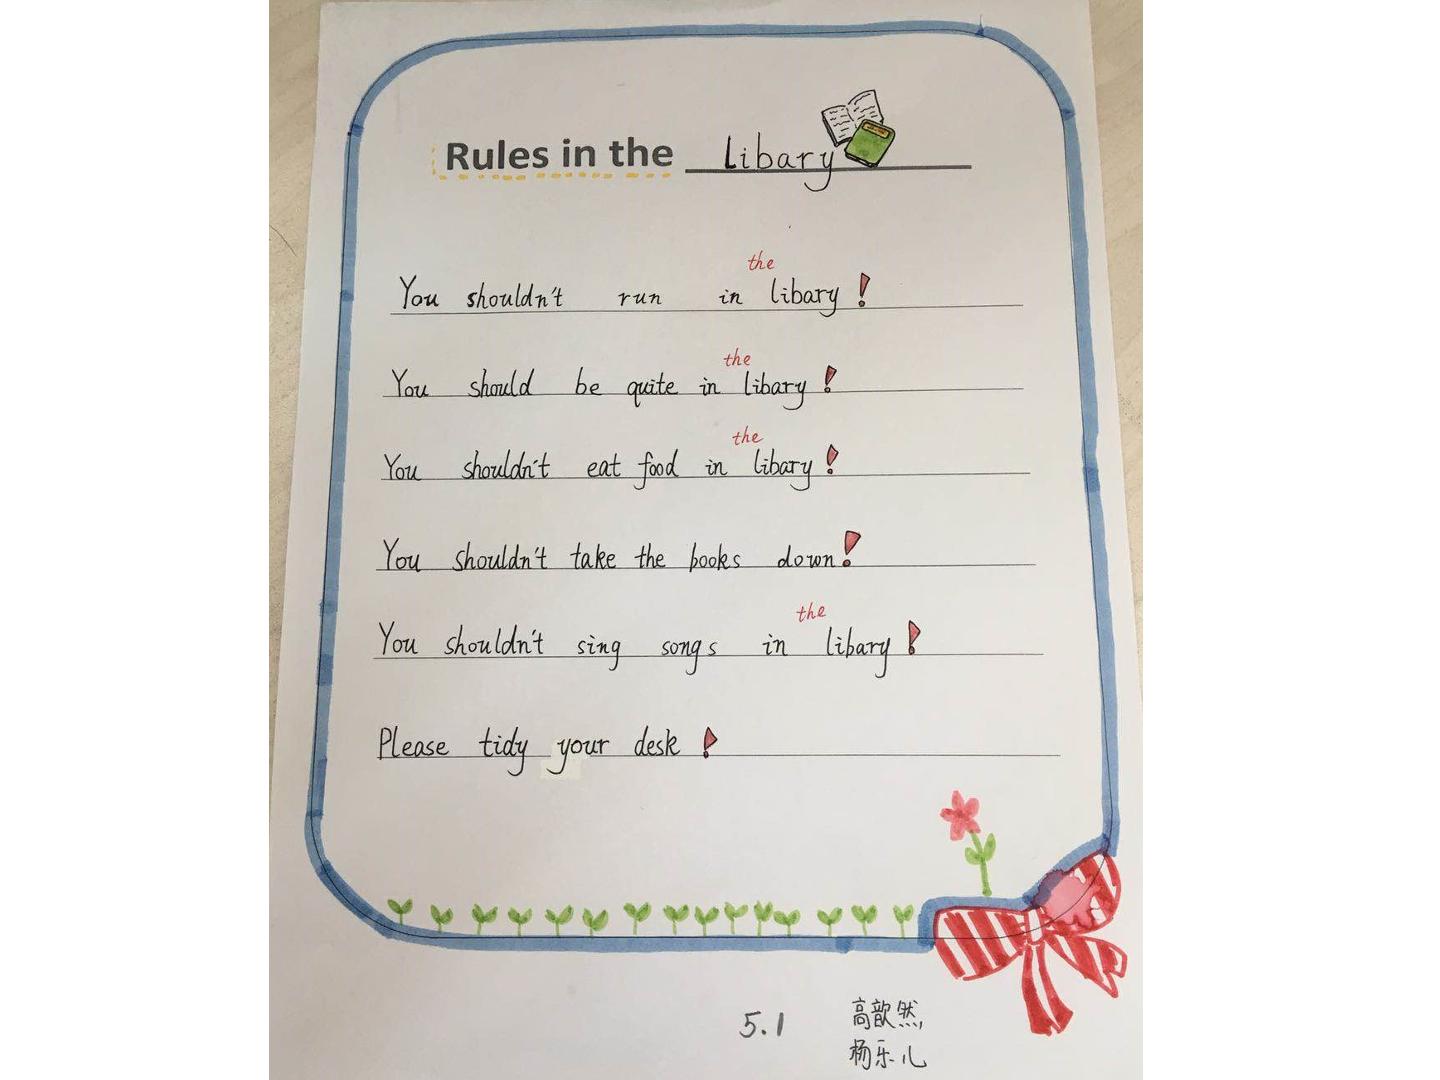 Rules in the Libary
You shouldn't run in the libary!
You should be quite in the libary!
You shouldn't eat food in the libary!
You shouldn't take the books down!
You shouldn't sing songs in the libary!
Please tidy your desk!
5.1 高歆然,
杨乐儿